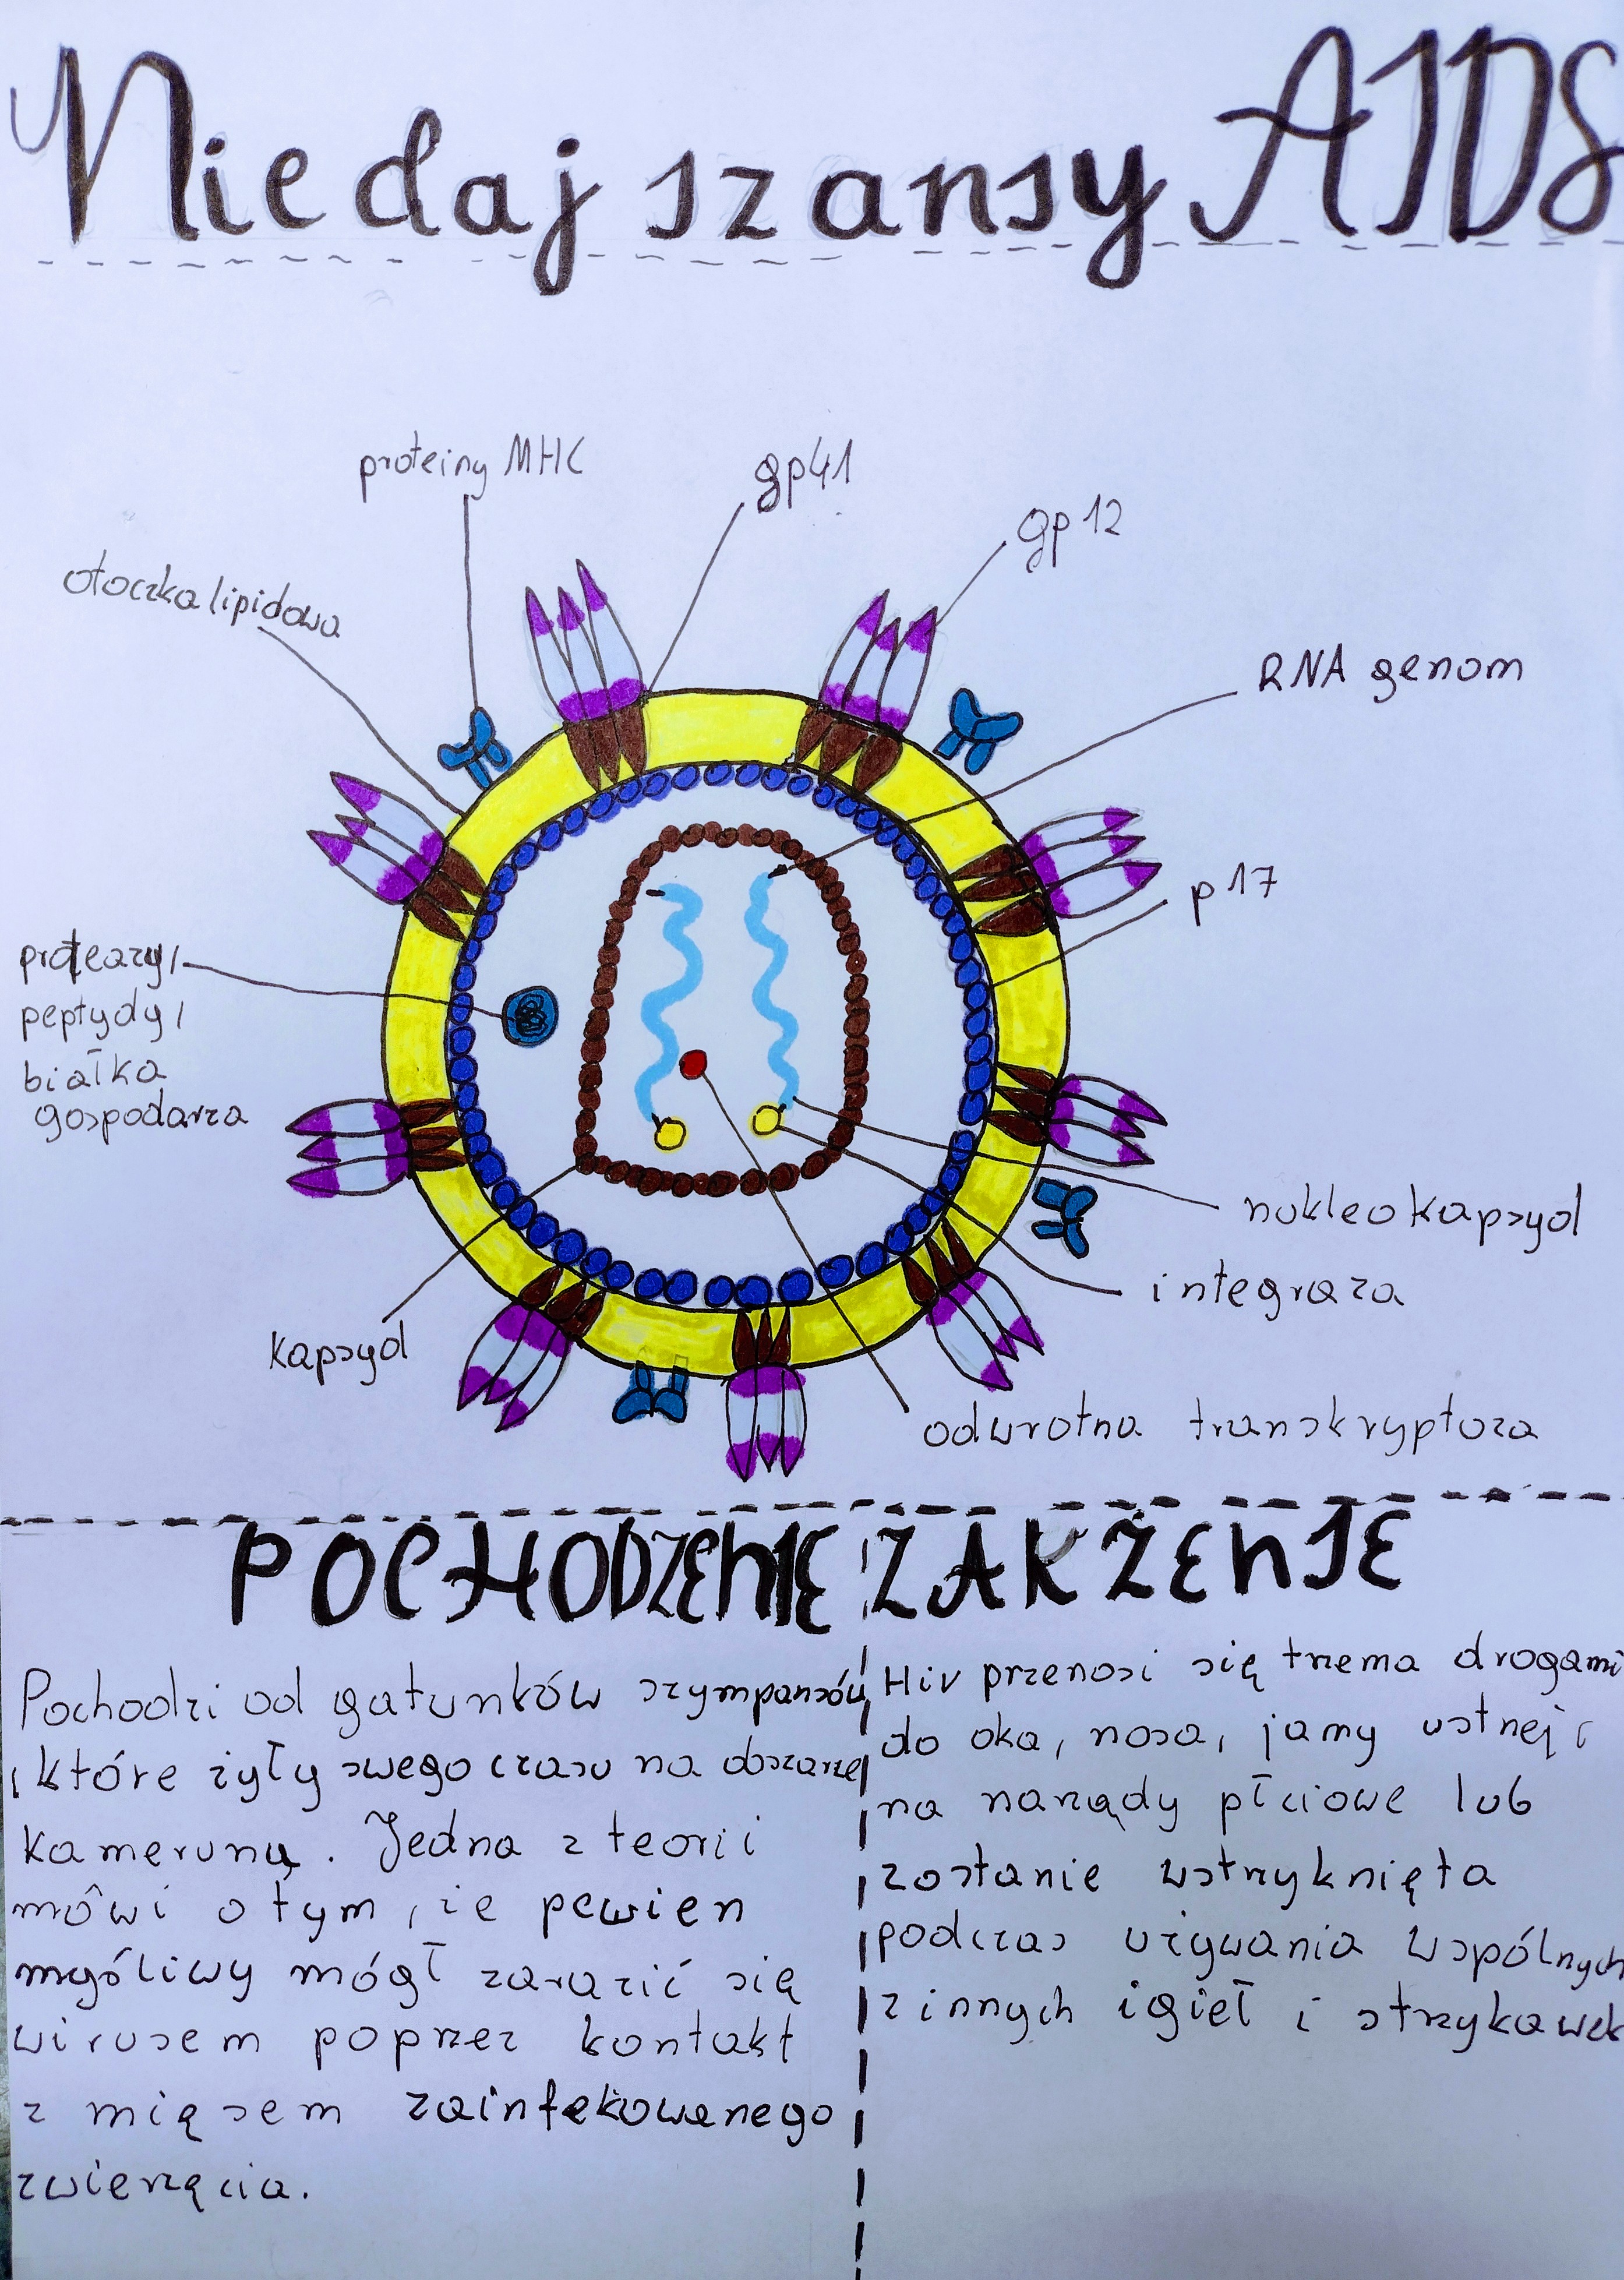 Nie daj szansy AIDS
proteiny MHC
gp41
gp 12
otoczka lipidowa
RNA genom
p 17
proteazy,
peptydy,
białka
gospodarza
nukleokapsyd
integraza
kapsyd
odwrotna transkryptaza
POCHODZENIE
Pochodzi od gatunków szympansów
, które żyły swego czasu na obszarze
kamerunu. Jedna z teorii
mówi o tym, że pewien
myśliwy mógł zarazić się
wirusem poprzez kontakt
z mięsem zainfekowanego
zwierzęcia.
ZAKŻENIE
Hiv przenosi się trzema drogami
do oka, nosa, jamy ustnej i
na narządy płciowe lub
zostanie wstrzyknięta
podczas używania wspólnych
z innych igieł i strzykawek